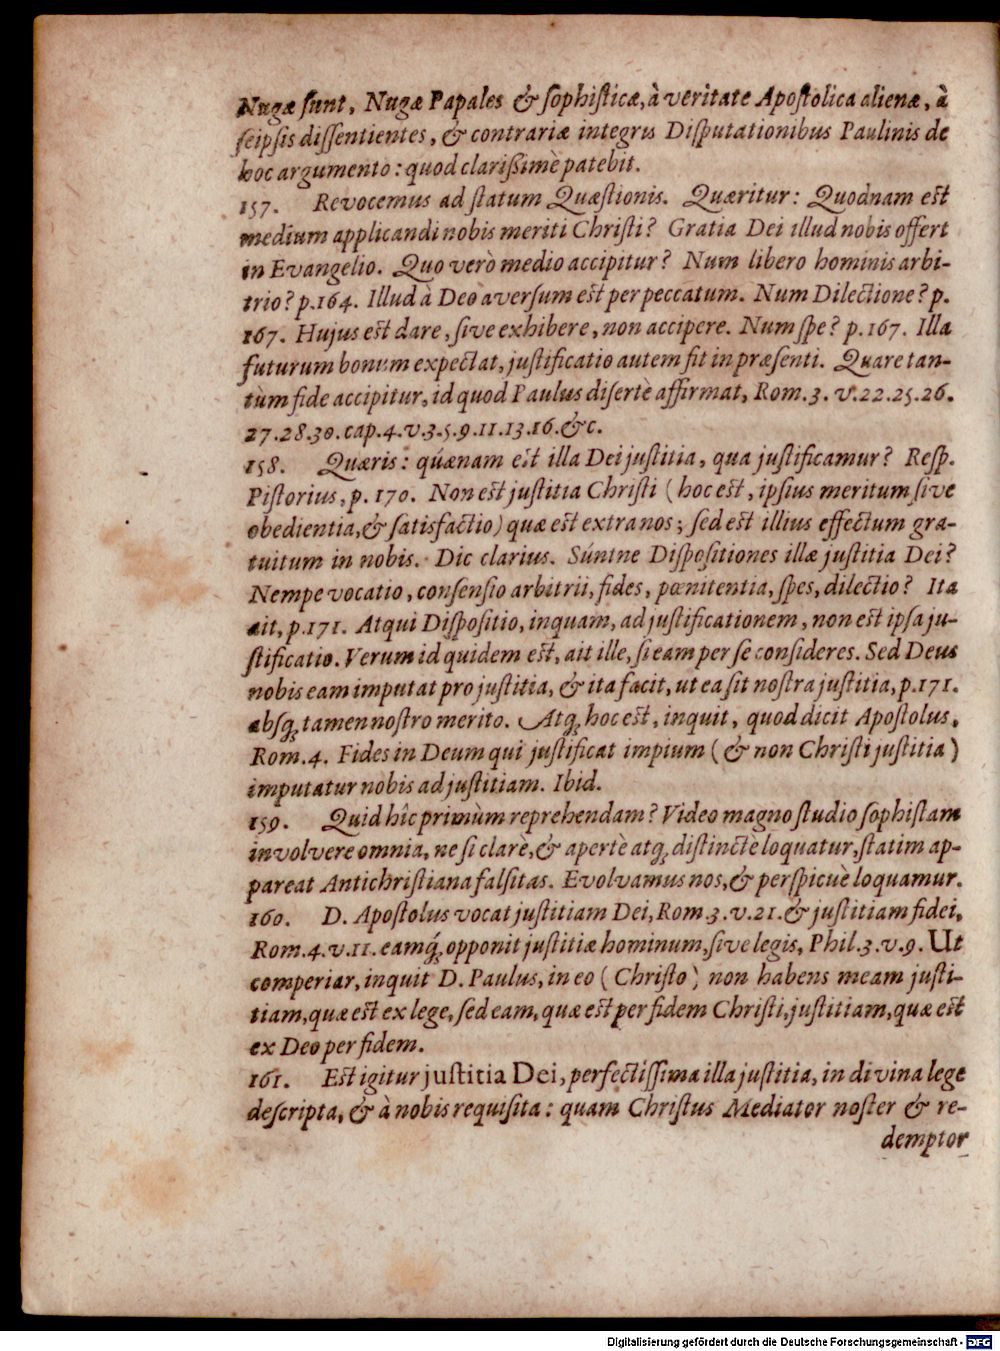 Nugæ sunt, Nugæ Papales & sophisticæ, à veritate Apostolica alienæ, à
seipsis dissentientes, & contrariæ integris Disputationibus Paulinis de
hoc argumento: quod clarissimè patebit.
157. Revocemus ad statum Quæstionis. Quæritur: Quodnam est
medium applicandi nobis meriti Christi? Gratia Dei illud nobis offert
in Evangelio. Quo verò medio accipitur? Num libero hominis arbi-
trio? p.164. Illud à Deo aversum est per peccatum. Num Dilectione? p.
167. Hujus est dare, sive exhibere, non accipere. Num spe? p.167. Illa
futurum bonum expectat, justificatio autem fit in præsenti. Quare tan-
tùm fide accipitur, id quod Paulus disertè affirmat, Rom.3. v.22.25.26.
27.28.30. cap.4.v.3.5.9.11.13.16.&c.
158. Quæris: quænam est illa Dei justitia, qua justificamur? Resp.
Pistorius, p.170. Non est justitia Christi (hoc est, ipsius meritum sive
obedientia, & satisfactio) quæ est extra nos; sed est illius effectum gra-
tuitum in nobis. Dic clarius. Súntne Dispositiones illæ justitia Dei?
Nempe vocatio, consensio arbitrii, fides, pœnitentia, spes, dilectio? Ita
ait, p.171. Atqui Dispositio, inquam, ad justificationem, non est ipsa ju-
stificatio. Verum id quidem est, ait ille, si eam per se consideres. Sed Deus
nobis eam imputat pro justitia, & ita facit, ut ea sit nostra justitia, p.171.
absq; tamen nostro merito. Atq; hoc est, inquit, quod dicit Apostolus,
Rom.4. Fides in Deum qui justificat impium (& non Christi justitia)
imputatur nobis ad justitiam. Ibid.
159. Quid hîc primùm reprehendam? Video magno studio sophistam
involvere omnia, ne si clarè, & apertè atq; distinctè loquatur, statim ap-
pareat Antichristiana falsitas. Evolvamus nos, & perspicuè loquamur.
160. D. Apostolus vocat justitiam Dei, Rom.3.v.21. & justitiam fidei,
Rom.4.v.11. eamq́; opponit justitiæ hominum, sive legis, Phil.3.v.9. Ut
comperiar, inquit D. Paulus, in eo (Christo) non habens meam justi-
tiam, quæ est ex lege, sed eam, quæ est per fidem Christi, justitiam, quæ est
ex Deo per fidem.
161. Est igitur justitia Dei, perfectissima illa justitia, in divina lege
descripta, & à nobis requisita: quam Christus Mediator noster & re-
demptor
Digitalisierung gefördert durch die Deutsche Forschungsgemeinschaft - DFG